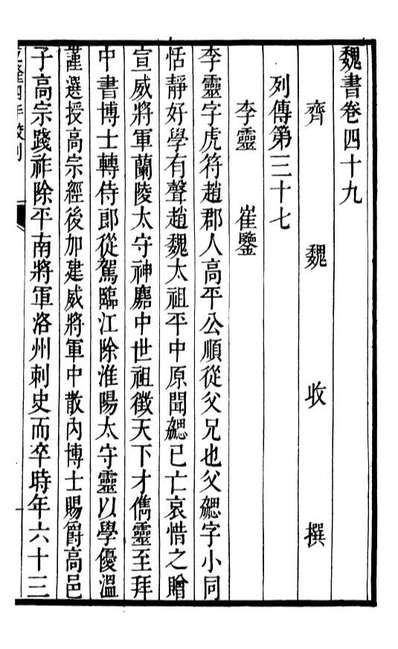 魏書卷四十九
齊魏收撰
列傳第三十七
李靈 崔鑒
李靈字虎符趙郡人高平公順從父兄也父勰字小同
恬靜好學有聲趙魏太祖平中原聞勰已亡哀惜之贈
宣威將軍蘭陵太守神䴥中世祖徵天下才儁靈至拜
中書博士轉侍郎從駕臨江除淮陽太守靈以學優溫
謹選授高宗經後加建威將軍中散內博士賜爵高邑
子高宗踐祚除平南將軍洛州刺史而卒時年六十三